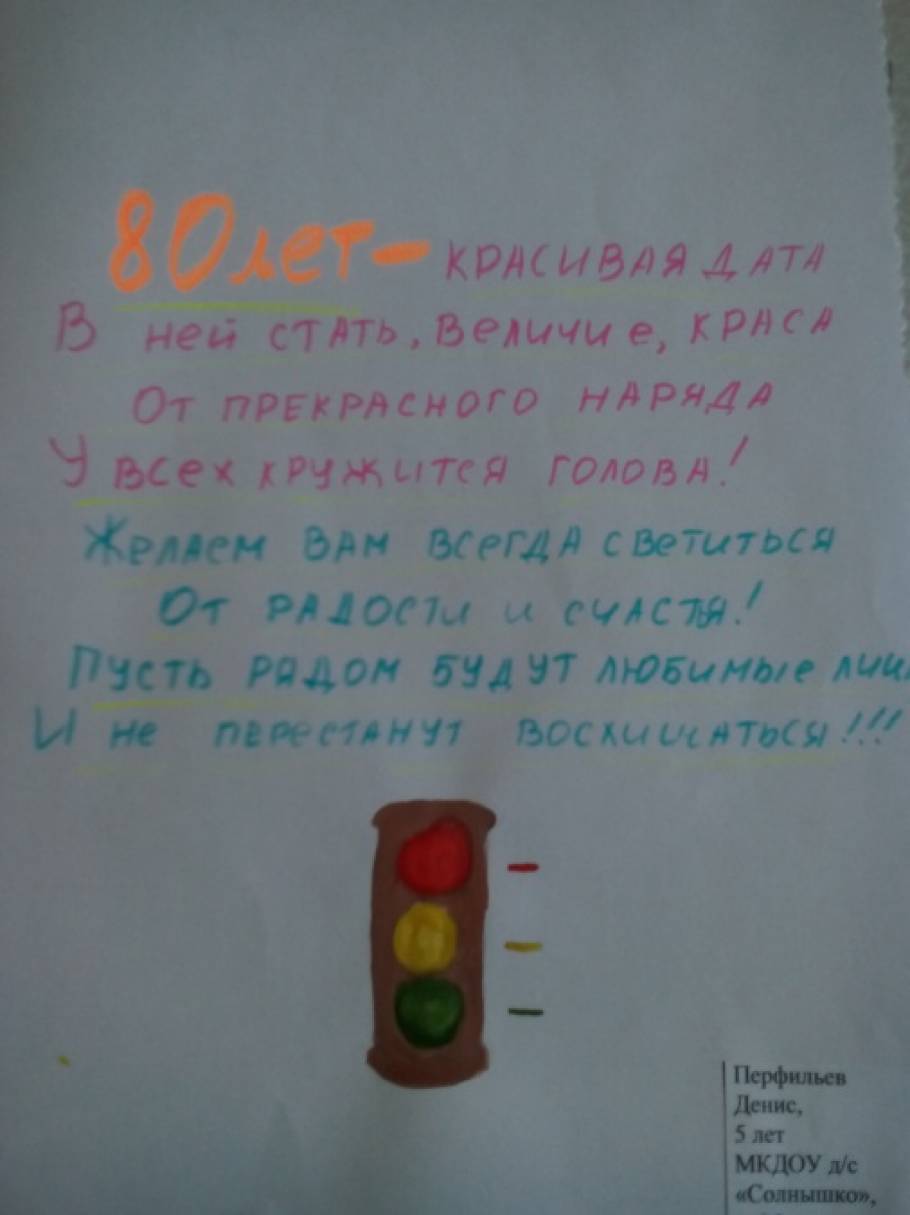 80 лет - КРАСИВАЯ ДАТА
В ней СТАТЬ, Величие, КРАСА
От ПРЕКРАСНОГО НАРЯДА
У всех кружится голова!
Желаем Вам всегда светиться
От РАДОСТИ и счастья!
Пусть рядом будут любимые
И не перестанут восхищаться!!!
Перфильев
Денис,
5 лет
МКДОУ д/с
«Солнышко»,